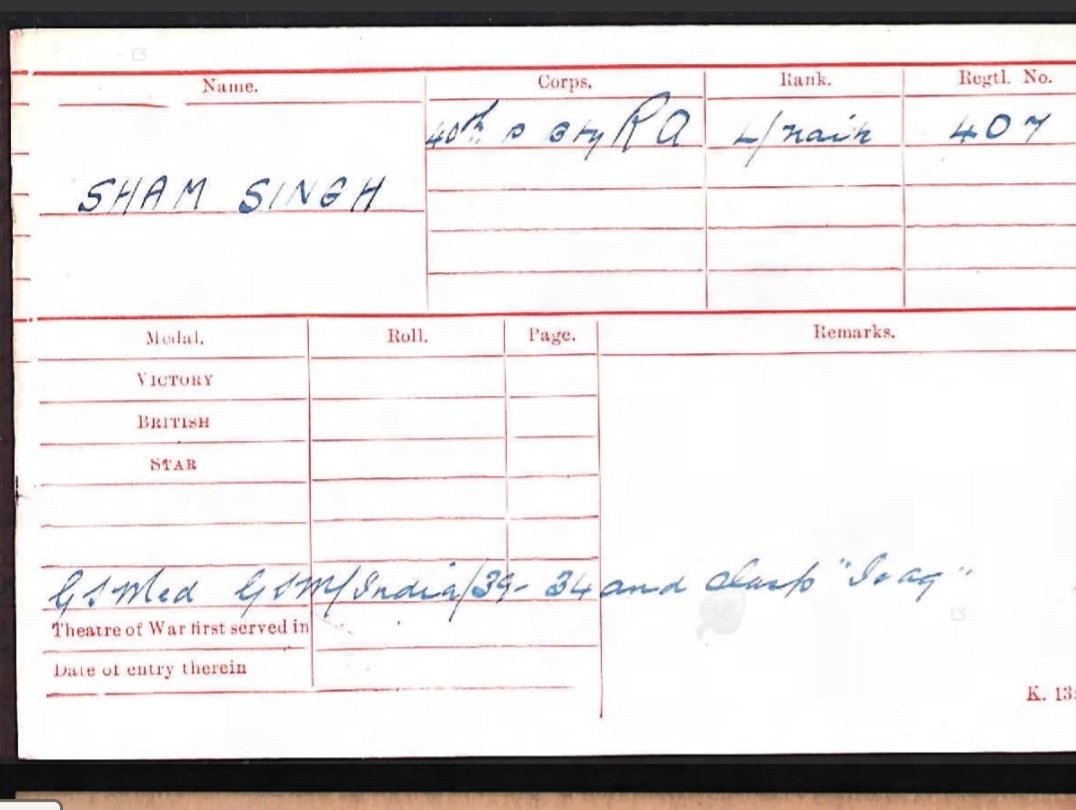 Name. Corps. Rank. Regtl. No.
40th P Bty RA L/Naik 407
SHAM SINGH
Medal. Roll. Page. Remarks.
VICTORY
BRITISH
STAR
GSMed GSM/India/39- 34 and clasp "Iraq"
Theatre of War first served in
Date of entry therein
K. 13